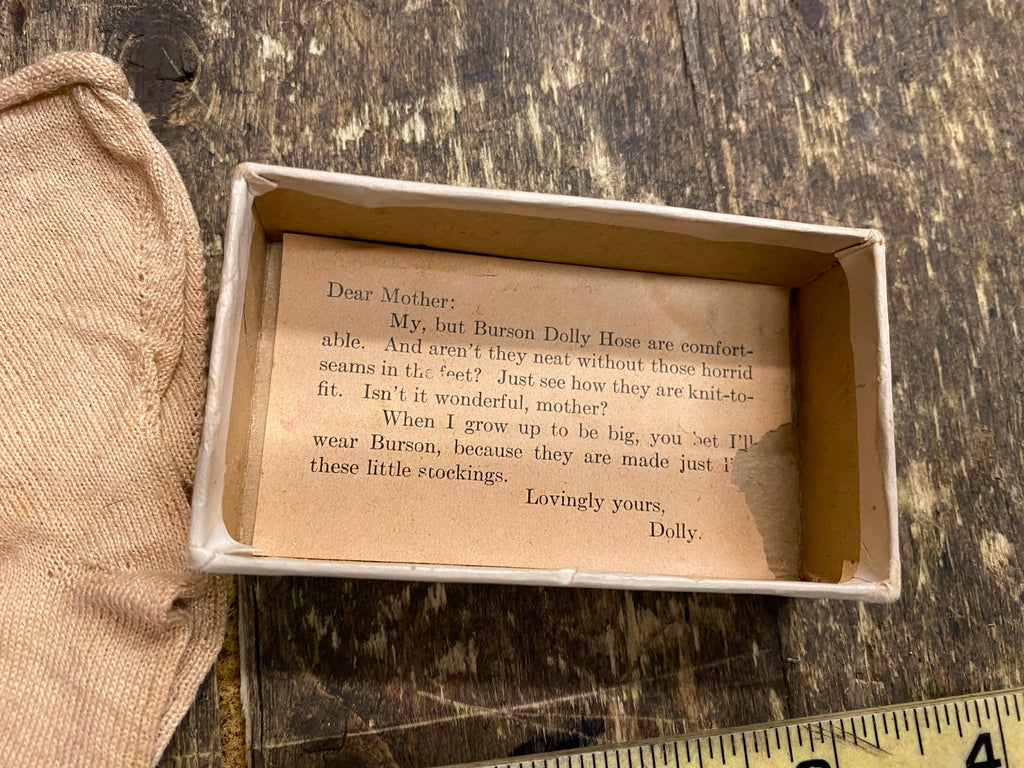 Dear Mother:
My, but Burson Dolly Hose are comfort-
able. And aren't they neat without those horrid
seams in the feet? Just see how they are knit-to-
fit. Isn't it wonderful, mother?
When I grow up to be big, you bet I'll
wear Burson, because they are made just
these little stockings.
Lovingly yours,
Dolly.
4